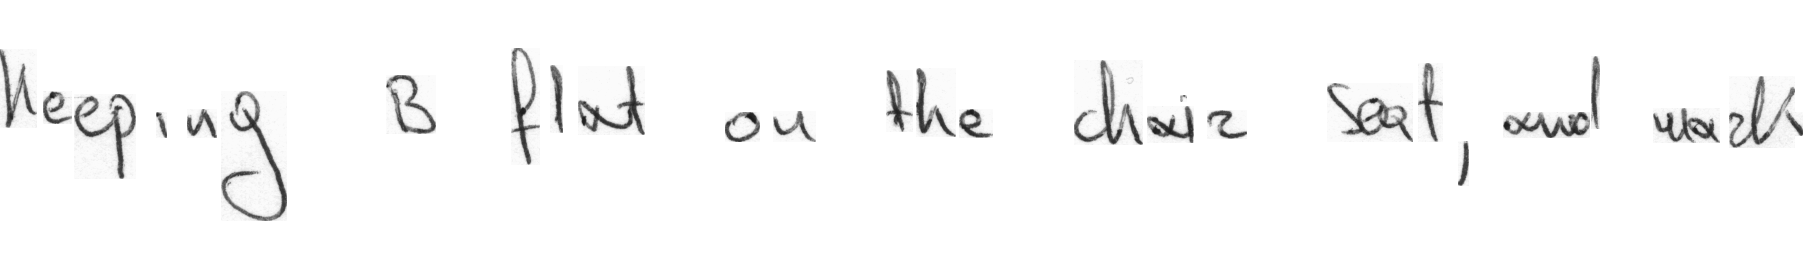 Keeping B flat on the chair seat, and mark